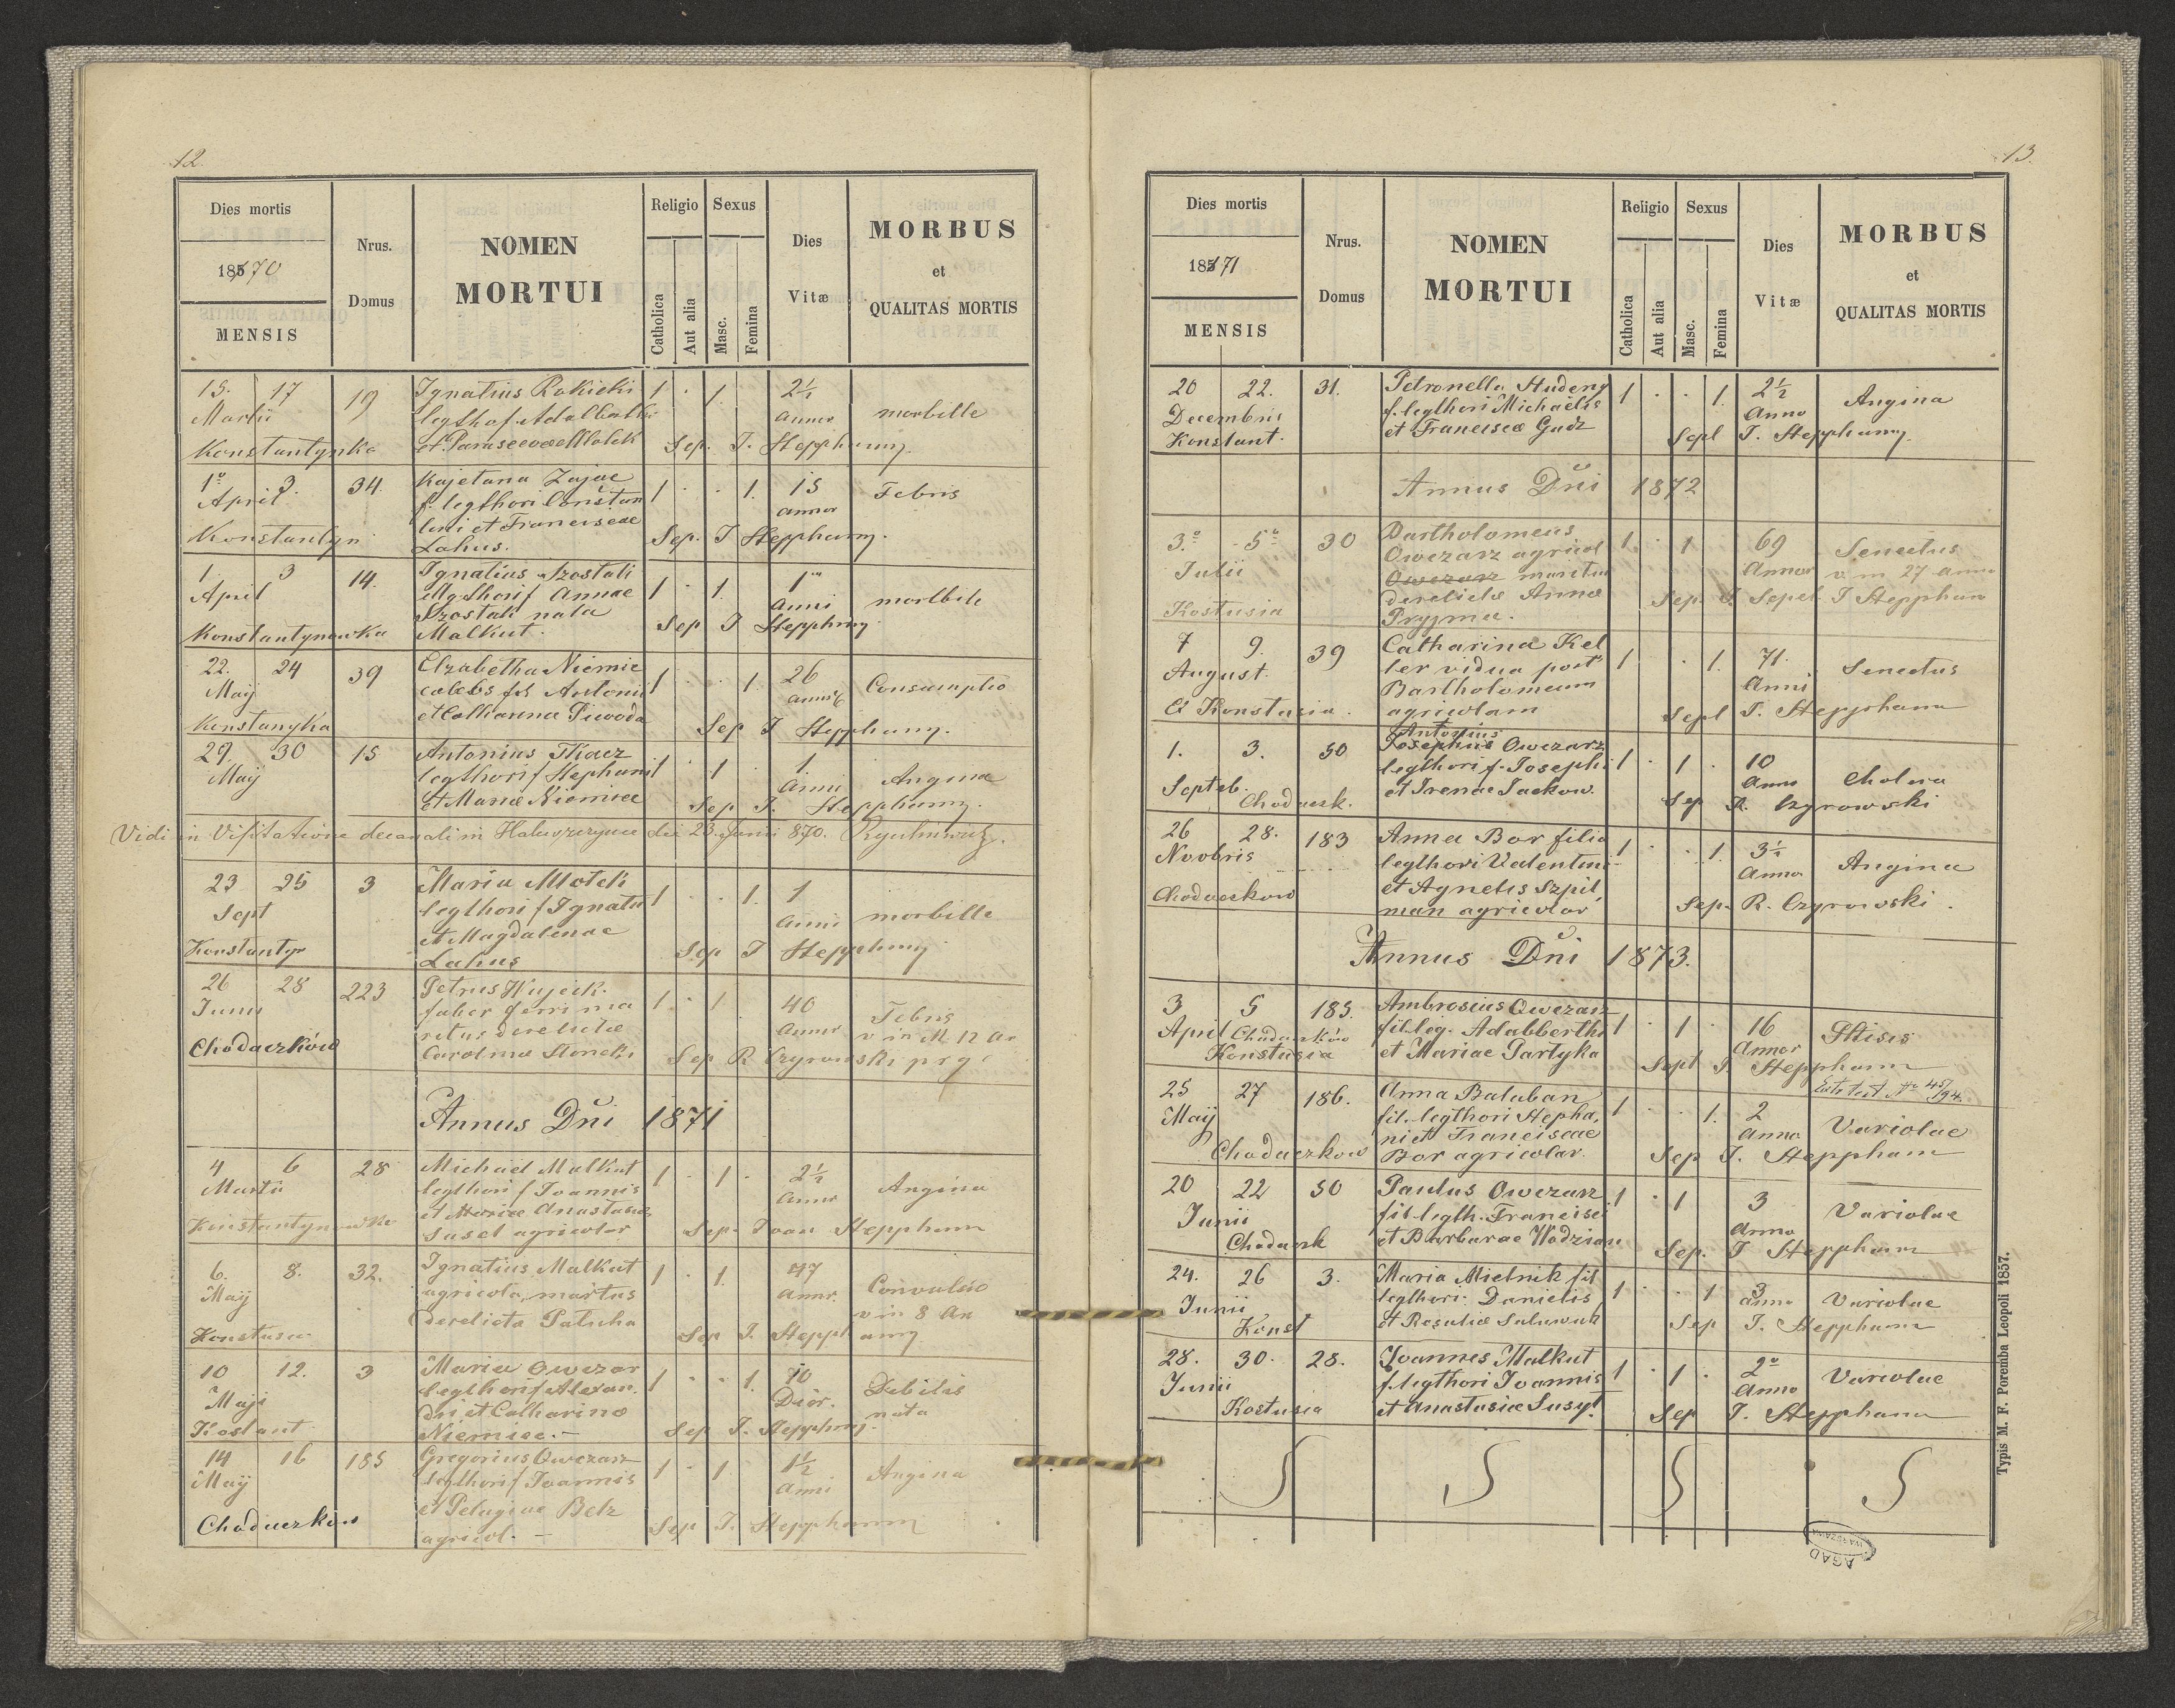 12.
Dies mortis
18570
MENSIS
Nrus.
Domus
NOMEN
MORTUI
Religio
Catholica
Aut alia
Sexus
Masc.
Femina
Dies
Vitæ
MORBUS
et
QUALITAS MORTIS
15. 17 19 Ignatius Rokicki 1 · 1. 2½
Martii Annor morbille
Konstantynka Sep. J. Stepphany.
1º 3. 34. Kajetana Zając 1 · · 1. 15 Febris
April f. legthori Constan annor
tini et Franciscae
Konstantyn Lahus. Sep. J Stepphany.
1. 3 14. Ignatius Szostak 1 · 1. 1
April Annae Anni morbile
Szostak nata
Konstantynowka Malkut. Sep J Stepphany
22. 24 39 Elzabetha Niemic 1 · · 1. 26
Maij caelebs fil Antonii Consumptio
Konstanyka et Catharinae Piwoda Sep J Stepphany.
29. 30 15 Antonius Tkacz 1 · 1 · 1.
Maij legthori f Stephani Anni Angina
et Mariae Niemiec Sep J. Stepphany.
Vidi in Visitatione decanali in die 23. Junii 870.
23 25 3 Maria Motek 1 · · 1. 1
Sept legthori f Ignatii Anni morbille
et Magdalenae
Konstantyn Lahus Sep J Stepphany
26 28 223 Petrus 1 · 1 40
Junii faber ferri ma Annor Febris
ritus derelictae v in M 12 an
Chodaczków Carolina Sep R Czyrowski
Annus Dni 1871
4 6 28 Michael Malkut 1 · 1 · 2½
Martii legthori f Joannis Annor Angina
et Mariae Anastasiae
Konstantynowka Suset agricolar Sep. Joan Stepphann
6. 8. 32. Ignatius Malkut 1 · 1. 47
Maij agricola, maritus annor. Convulsio
derelicta v in 8 An
Konstusia Sep J. Stepphany
10 12. 3 Maria Owczar 1 · · 1. 10
Maji legthori f Alexan Dier. Debilis
dri et Catharinae nata
Kostant Niemiec.— Sep J. Stepphany.
14 16 185 Gregorius Owczarz 1 · 1. 1½
Maij legthori f Joannis Anni Angina
et Pelagiae Belz
Chodaczków agricol.— Sep J. Stepphann
13.
Dies mortis
18571
MENSIS
Nrus.
Domus
NOMEN
MORTUI
Religio
Catholica
Aut alia
Sexus
Masc.
Femina
Dies
Vitæ
MORBUS
et
QUALITAS MORTIS
20 22. 31. Petronella Studeny 1 · · 1. 2½ Angina
Decembris f. legthori Michaelis Anno
Konstant. et Franciscae Gudz Sepl J. Stepphany.
Annus Dni 1872
3.º 5º 30 Bartholomeus 1. · 1 69 Senectus
Julii Owczarz agricol Annor v in 27 anno
Owczarz maritus
derelicta Anna Sep. J. Stepphan
Kostusia Pryzma.
7 9. 39 Catharina Kel 1 · 1. 71. Senectus
August. ler vidua post Anni
Bartholomeum
Konstusia. agricolam Sepl J. Stepphann
Antonius
1. 3. 50 Josephus Owczarz 1 · 1 · 10 Cholera
Septeb. legthori f. Josephi Anno
Chodaczk. et Irenae Jackow. Sep R. Czyrowski
26 28. 183 Anna Bor filia 1 · · 1. 3½ Angina
Novbris legthori Valentini Anno
et Agnetis Szpil
Chodaczkow man agricolar Sep. R. Czyrowski.
Annus Dni 1873.
3 5 183. Ambrosius Owczarz 1 · 1 · 16 Ftisis
April Chodaczków fil. leg. Adalberthi Annor
Konstusia et Mariae Partyka Sept J. Stepphann
25 27 186. Anna Balaban 1 · · 1. 2 Variolae
Maij fil. legthori Stepha, Anno
ni et Franciscae
Chodaczkow Bor agricolar. Sep J. Stepphann
20 22 50 Paulus Owczarz 1 · 1 3 Variolae
Junii fil legth. Francisci Anno
Chodaczk et Barbarae Wodzian Sep. J Stepphann
24. 26 3. Maria Mielnik fil 1 · · 1 3 Variolae
Junii legthori: Danielis anno
Konst et Rosaliae Sep J. Stepphann
28. 30. 28. Joannes Malkut 1 · 1 · 2º Variolae
Junii f. legthori Joannis Anno
Kostusia et Anastasiae Susyt. Sep J. Stepphann
Typis M. F. Poremba Leopoli 1857.
AGAD
WARSZAWA